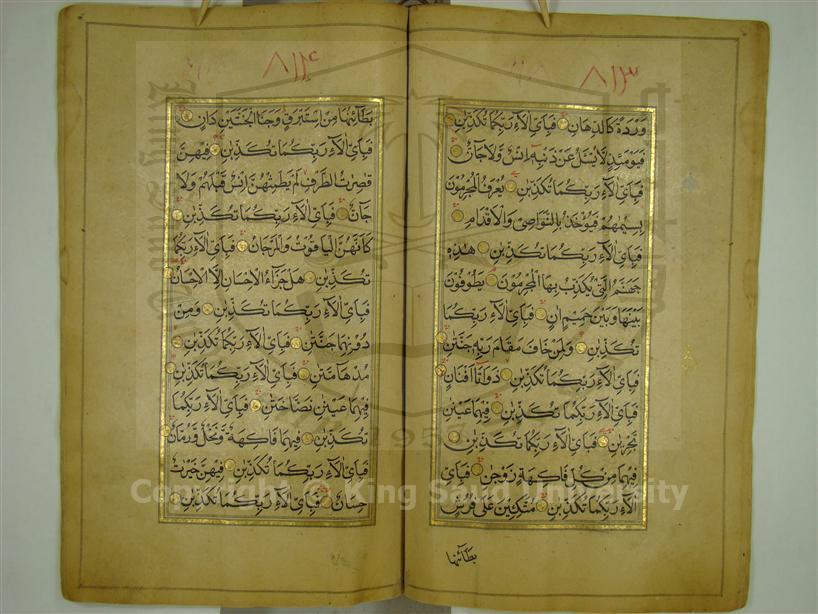 ٨١٣
وَرْدَةً كَالدِّهَانِ فَبِاَيِّ اٰلَاءِ رَبِّكُمَا تُكَذِّبٰنِ
فَيَوْمَئِذٍ لَا يُسْئَلُ عَنْ ذَنْبِهٖ اِنْسٌ وَلَا جَانٌّ
فَبِاَيِّ اٰلَاءِ رَبِّكُمَا تُكَذِّبٰنِ يُعْرَفُ الْمُجْرِمُونَ
بِسِيمٰهُمْ فَيُؤْخَذُ بِالنَّوَاصِي وَالْاَقْدَامِ
فَبِاَيِّ اٰلَاءِ رَبِّكُمَا تُكَذِّبٰنِ هٰذِهٖ
جَهَنَّمُ الَّتِي يُكَذِّبُ بِهَا الْمُجْرِمُونَ يَطُوفُونَ
بَيْنَهَا وَبَيْنَ حَمِيمٍ اٰنٍ فَبِاَيِّ اٰلَاءِ رَبِّكُمَا
تُكَذِّبٰنِ وَلِمَنْ خَافَ مَقَامَ رَبِّهٖ جَنَّتٰنِ
فَبِاَيِّ اٰلَاءِ رَبِّكُمَا تُكَذِّبٰنِ ذَوَاتَا اَفْنَانٍ
فَبِاَيِّ اٰلَاءِ رَبِّكُمَا تُكَذِّبٰنِ فِيهِمَا عَيْنٰنِ
تَجْرِيٰنِ فَبِاَيِّ اٰلَاءِ رَبِّكُمَا تُكَذِّبٰنِ
فِيهِمَا مِنْ كُلِّ فَاكِهَةٍ زَوْجٰنِ فَبِاَيِّ
اٰلَاءِ رَبِّكُمَا تُكَذِّبٰنِ مُتَّكِئِينَ عَلٰى فُرُشٍ
بَطَائِنُهَا
٨١٤
بَطَائِنُهَا مِنْ اِسْتَبْرَقٍ وَجَنَا الْجَنَّتَيْنِ دَانٍ
فَبِاَيِّ اٰلَاءِ رَبِّكُمَا تُكَذِّبٰنِ فِيهِنَّ
قٰصِرٰتُ الطَّرْفِ لَمْ يَطْمِثْهُنَّ اِنْسٌ قَبْلَهُمْ وَلَا
جَانٌّ فَبِاَيِّ اٰلَاءِ رَبِّكُمَا تُكَذِّبٰنِ
كَاَنَّهُنَّ الْيَاقُوتُ وَالْمَرْجَانُ فَبِاَيِّ اٰلَاءِ رَبِّكُمَا
تُكَذِّبٰنِ هَلْ جَزَاءُ الْاِحْسَانِ اِلَّا الْاِحْسَانُ
فَبِاَيِّ اٰلَاءِ رَبِّكُمَا تُكَذِّبٰنِ وَمِنْ
دُونِهِمَا جَنَّتٰنِ فَبِاَيِّ اٰلَاءِ رَبِّكُمَا تُكَذِّبٰنِ
مُدْهَامَّتٰنِ فَبِاَيِّ اٰلَاءِ رَبِّكُمَا تُكَذِّبٰنِ
فِيهِمَا عَيْنٰنِ نَضَّاخَتٰنِ فَبِاَيِّ اٰلَاءِ رَبِّكُمَا
تُكَذِّبٰنِ فِيهِمَا فَاكِهَةٌ وَنَخْلٌ وَرُمَّانٌ
فَبِاَيِّ اٰلَاءِ رَبِّكُمَا تُكَذِّبٰنِ فِيهِنَّ خَيْرٰتٌ
حِسَانٌ فَبِاَيِّ اٰلَاءِ رَبِّكُمَا تُكَذِّبٰنِ
Copyright © King Saud University